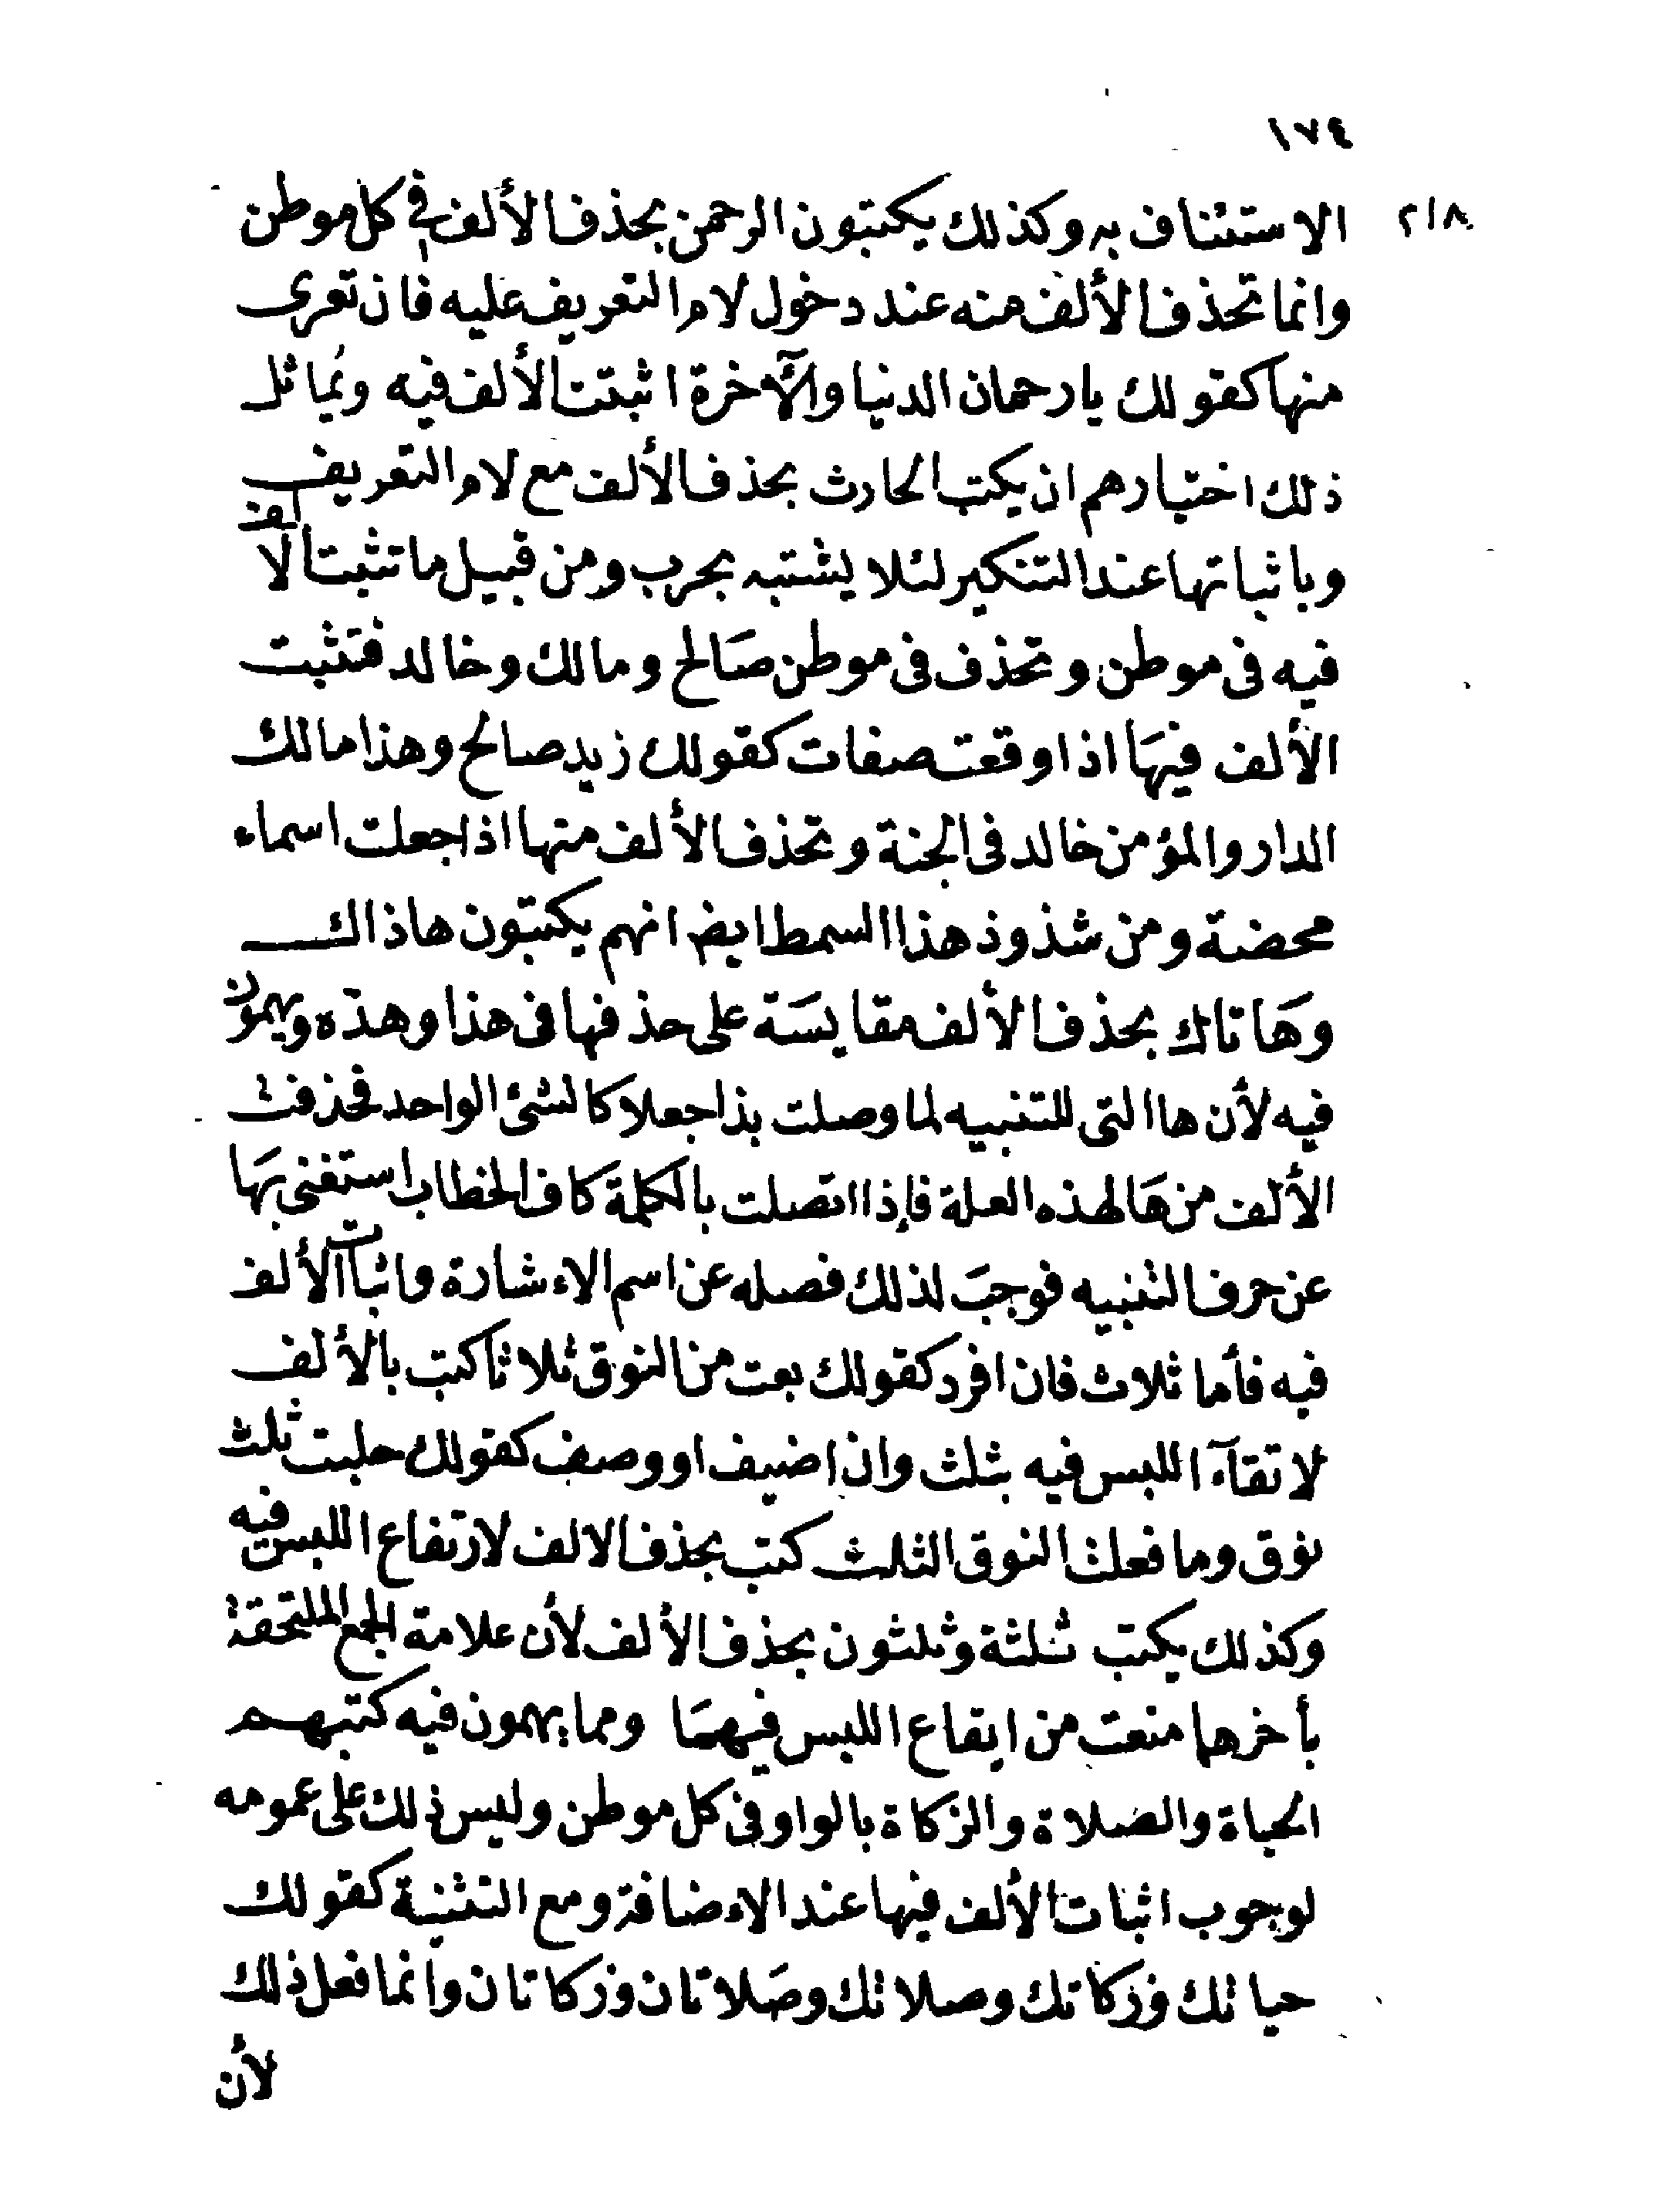 ١٧٤
٢١٨
الاستئناف به وكذلك يكتبون الرحمن بحذف الألف في كل موطن
وانما تحذف الألف منه عند دخول لام التعريف عليه فان تعرى
منها كقولك يا رحمان الدنيا والآخرة اثبتت الألف فيه ويماثل
ذلك اختيارهم ان يكتب الحارث بحذف الألف مع لام التعريف
وباثباتها عند التنكير لئلا يشتبه بحرب ومن قبيل ما تثبت الألف
فيه فى موطن وتحذف فى موطن صَالح ومالك وخالد فتثبت
الألف فيهَا اذا وقعت صفات كقولك زيد صالح وهذا مالك
الدار والمؤمن خالد فى الجنة وتحذف الألف منها اذا جعلت اسماء
محضة ومن شذوذ هذا السمط ايض انهم يكتبون هاذاك
وهَاتاك بحذف الألف مقايسَة على حذفها فى هذا وهذه ويهمون
فيه لأن ها التى للتنبيه لما وصلت بذا جعلا كالشئ الواحد فحذفت
الألف من هَا لهذه العلة فإذا اتصلت بالكلمة كاف الخطاب استغنى بهَا
عن حرف التنبيه فوجبَ لذلك فصله عن اسم الاءشارة واثبات الألف
فيه فأما ثلاث فان افرد كقولك بعت من النوق ثلاثا كتب بالألف
لاتقآء اللبس فيه بثلث وان اضيف او وصف كقولك حلبت ثلث
نوق وما فعلت النوق الثلث كتب بحذف الالف لارتفاع اللبس فيه
وكذلك يكتب ثلثة وثلثون بحذف الألف لأن علامة الجمع الملتحقة
بأخرهما منعت من ايقاع اللبس فيهمَا ومما يهمون فيه كتبهم
الحياة والصلاة والزكاة بالواو فى كل موطن وليس ذلك على عمومه
لوجوب اثبات الألف فيها عند الاءضافة ومع التثنية كقولك
حياتك وزكاتك وصلاتك وصَلاتان وزكاتان وانما فعل ذلك
لأن